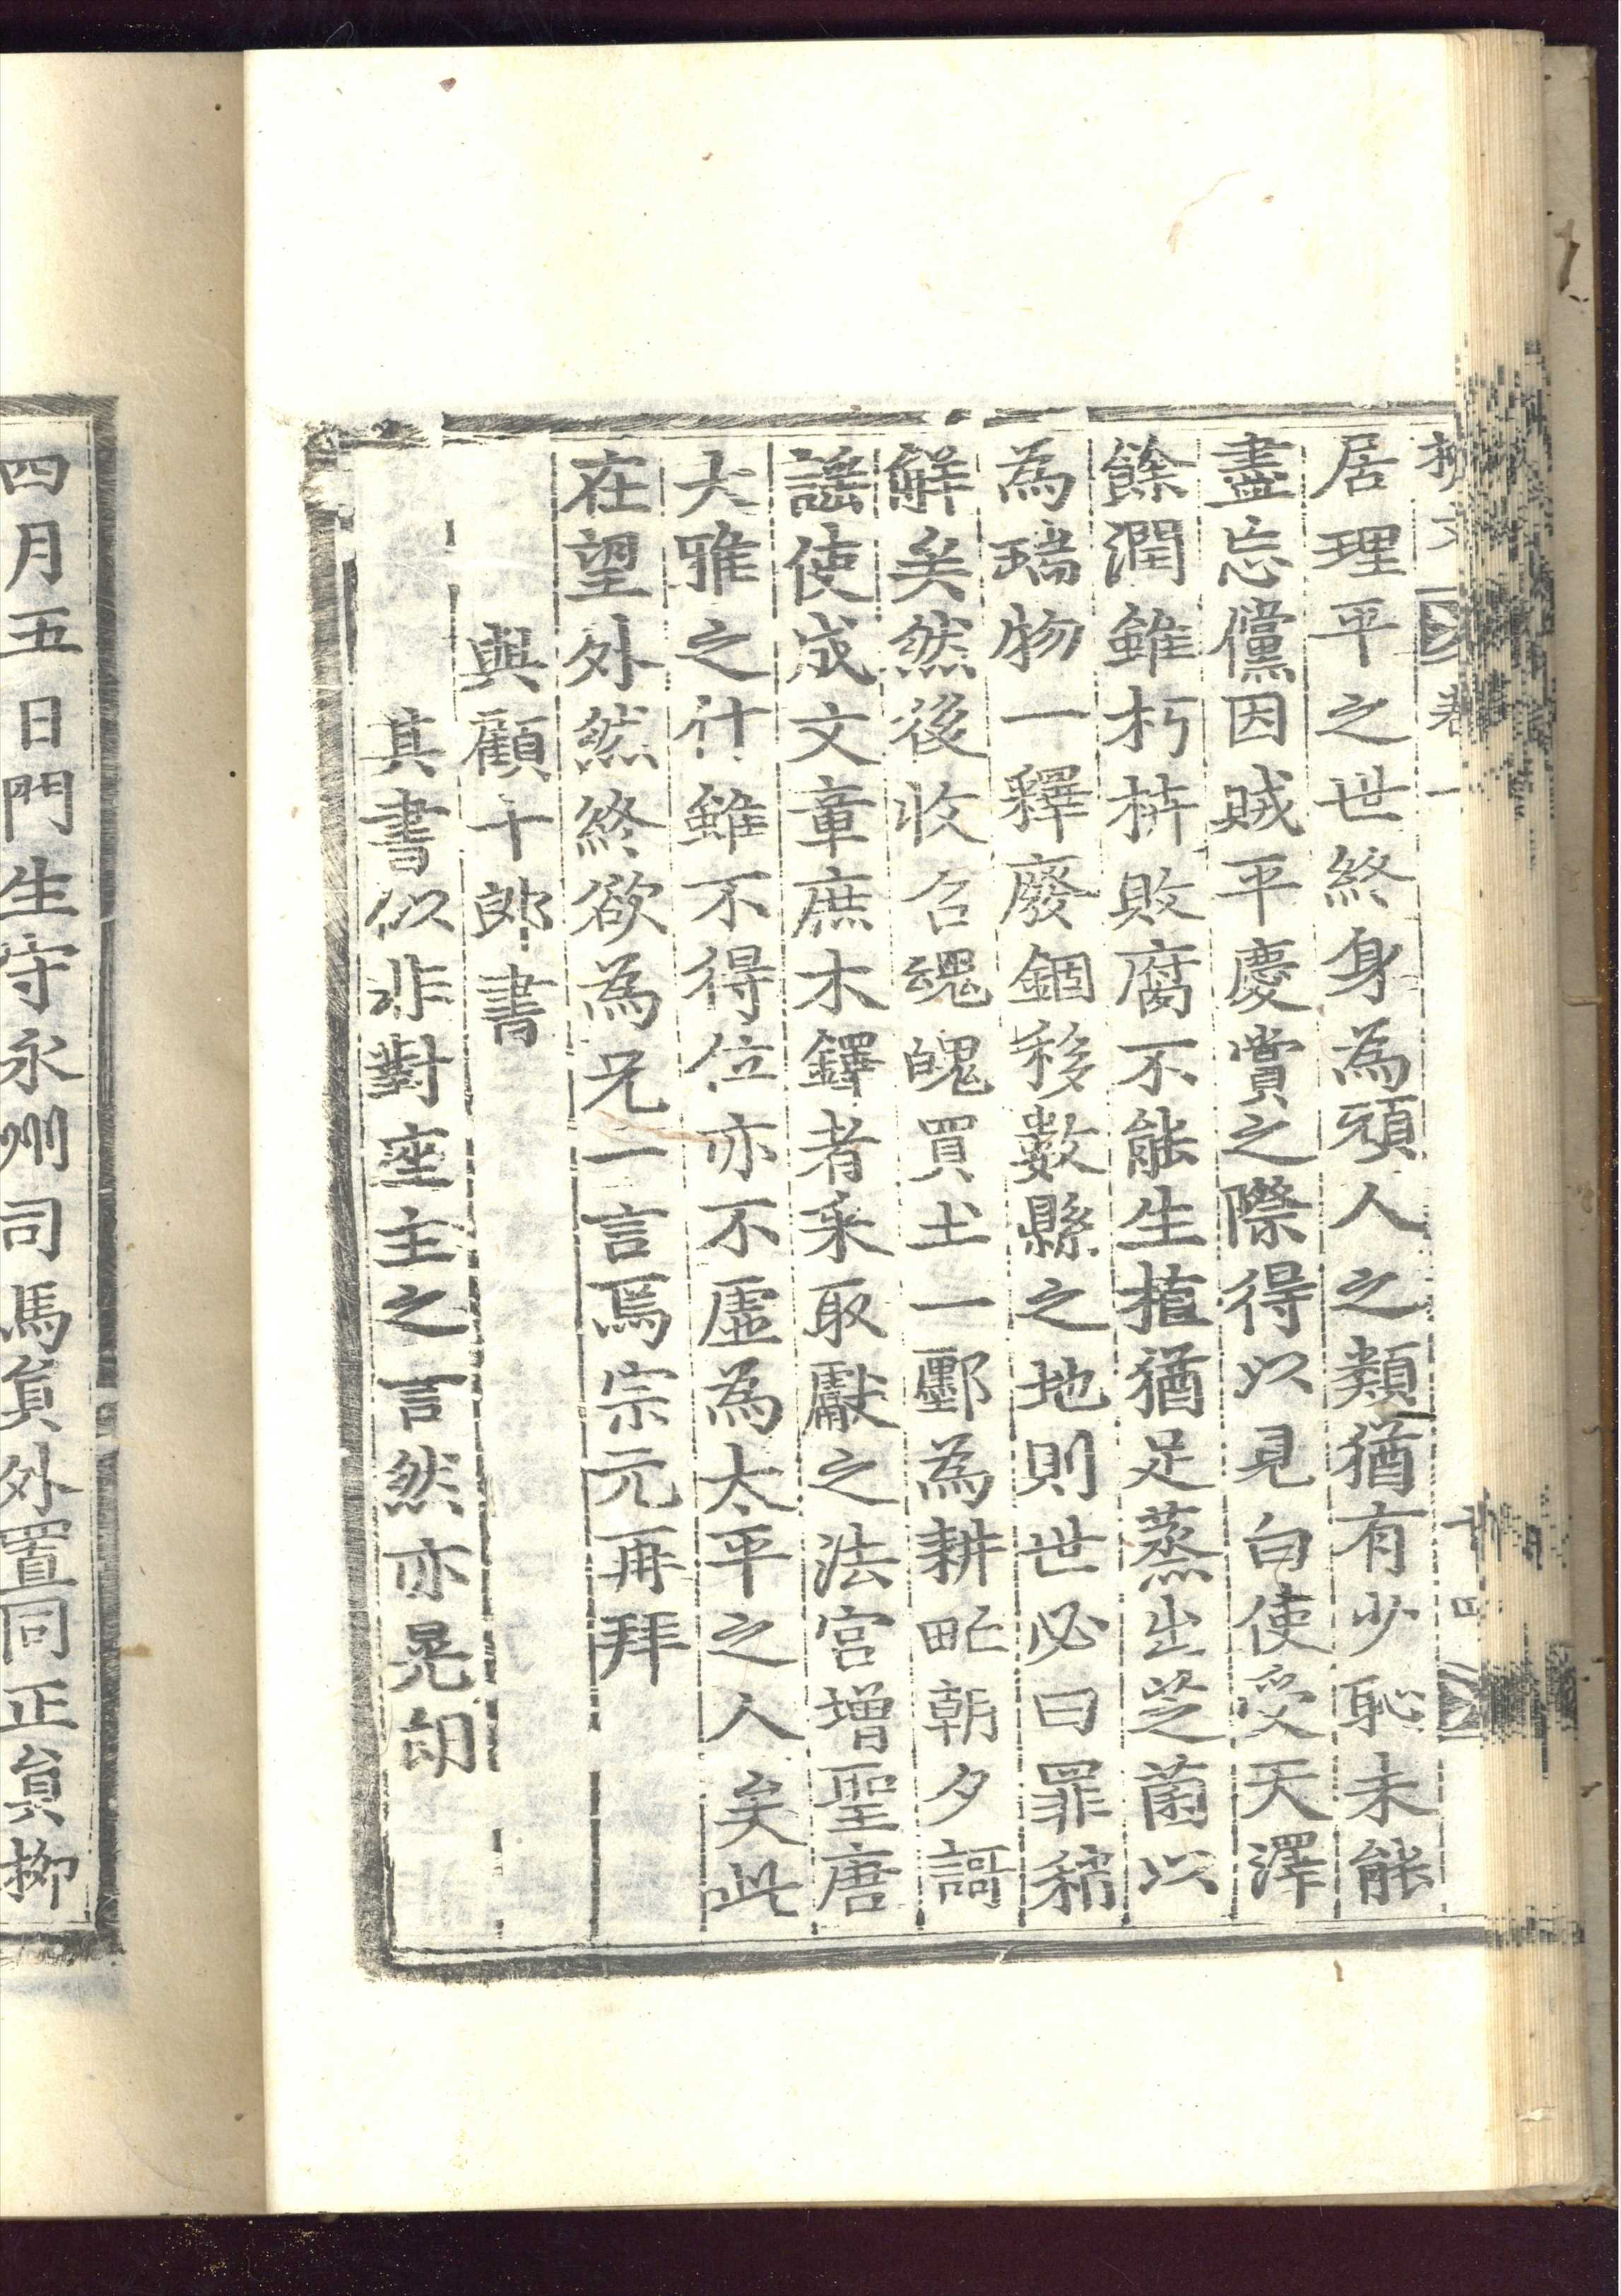 居理平之世終身為頑人之類猶有少恥未能
盡忘儻因賊平慶賞之際得以見白使受天澤
餘潤雖朽枿敗腐不能生植猶足蒸出芝菌以
為瑞物一釋廢錮移數縣之地則世必曰罪稍
解矣然後收召魂魄買土一鄽為耕甿朝夕謌
謡使成文章庶木鐸者采取獻之法宮增聖唐
大雅之什雖不得位亦不虛為太平之人矣此
在望外然終欲為兄一言焉宗元再拜
與顧十郎書
其書似非對座主之言然亦晃朗
四月五日門生守永州司馬員外置同正員柳